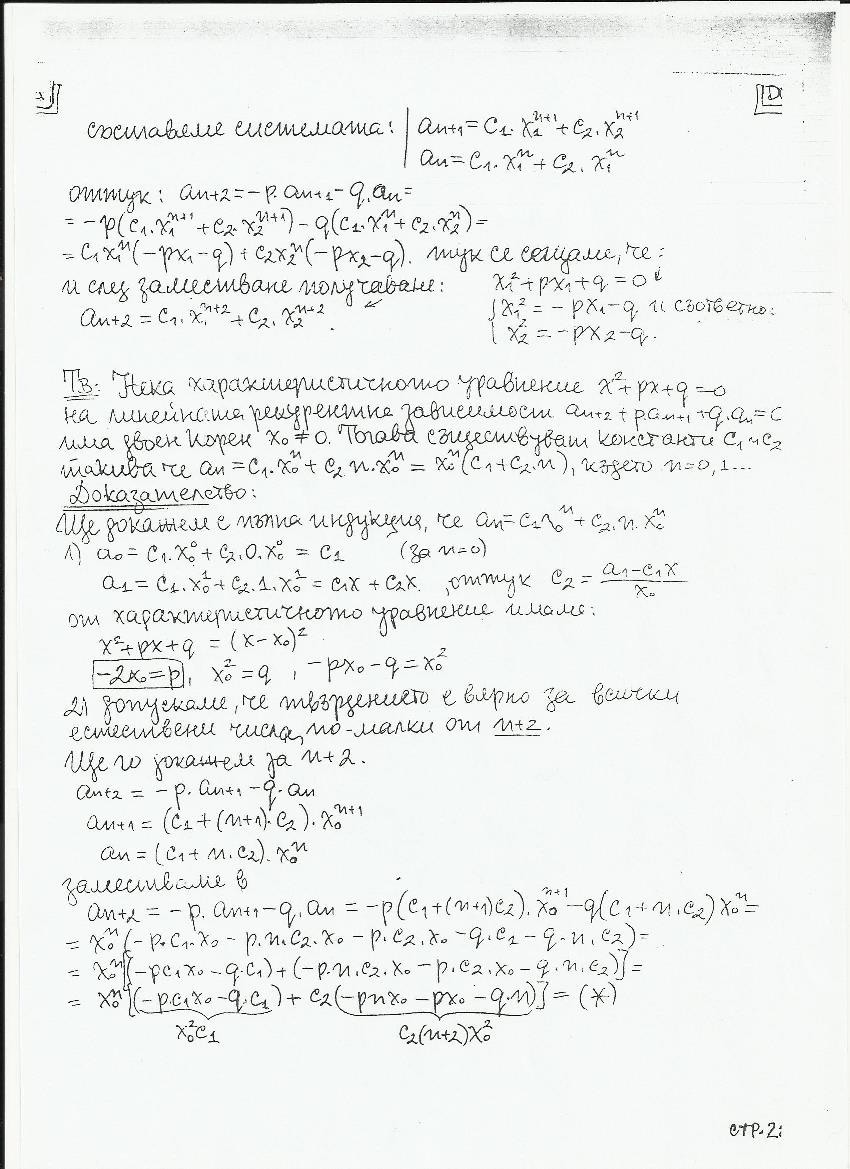 съставяме системата: | aₙ₊₁ = C₁. x₁ⁿ⁺¹ + C₂. x₂ⁿ⁺¹
aₙ = C₁. x₁ⁿ + C₂. x₁ⁿ
оттук: aₙ₊₂ = -p. aₙ₊₁ - q. aₙ =
= -p(C₁. x₁ⁿ⁺¹ + C₂. x₂ⁿ⁺¹) - q(C₁. x₁ⁿ + C₂. x₂ⁿ) =
= C₁x₁ⁿ(-px₁-q) + C₂x₂ⁿ(-px₂-q). тук се сещаме, че:
и след заместване получаваме: x₁² + px₁ + q = 0
aₙ₊₂ = C₁. x₁ⁿ⁺² + C₂. x₂ⁿ⁺². { x₁² = -px₁-q и съответно:
x₂² = -px₂-q.
Тв: Нека характеристичното уравнение x²+px+q=0
на линейната рекурентна зависимост aₙ₊₂ + paₙ₊₁ + q.aₙ = C
има двоен корен x₀ ≠ 0. Тогава съществуват константи C₁ и C₂
такива че aₙ = C₁. x₀ⁿ + C₂ n. x₀ⁿ = x₀ⁿ(C₁ + C₂. n), където n=0,1...
Доказателство:
Ще докажем с пълна индукция, че aₙ = C₁ x₀ⁿ + C₂. n. x₀ⁿ
1) a₀ = C₁. x₀⁰ + C₂. 0. x₀⁰ = C₁ (за n=0)
a₁ = C₁. x₀¹ + C₂. 1. x₀¹ = C₁x + C₂x. , оттук C₂ = (a₁ - C₁x)/x₀
от характеристичното уравнение имаме:
x²+px+q = (x-x₀)²
-2x₀=p, x₀² = q , -px₀ - q = x₀²
2) допускаме, че твърдението е вярно за всички
естествени числа, по-малки от n+2.
Ще го докажем за n+2.
aₙ₊₂ = -p. aₙ₊₁ - q. aₙ
aₙ₊₁ = (C₁ + (n+1). C₂). x₀ⁿ⁺¹
aₙ = (C₁ + n. C₂). x₀ⁿ
заместваме в
aₙ₊₂ = -p. aₙ₊₁ - q. aₙ = -p(C₁ + (n+1)C₂). x₀ⁿ⁺¹ - q(C₁ + n. C₂) x₀ⁿ =
= x₀ⁿ(-p. C₁. x₀ - p. n. C₂. x₀ - p. C₂. x₀ - q. C₁ - q. n. C₂) =
= x₀ⁿ[(-pC₁x₀ - q. C₁) + (-p. n. C₂. x₀ - p. C₂. x₀ - q. n. C₂)] =
= x₀ⁿ[(-p.C₁x₀ - q. C₁) + C₂(-pnx₀ - px₀ - q. n)] = (*)
x₀²C₁ C₂(n+2)x₀²
стр. 2: